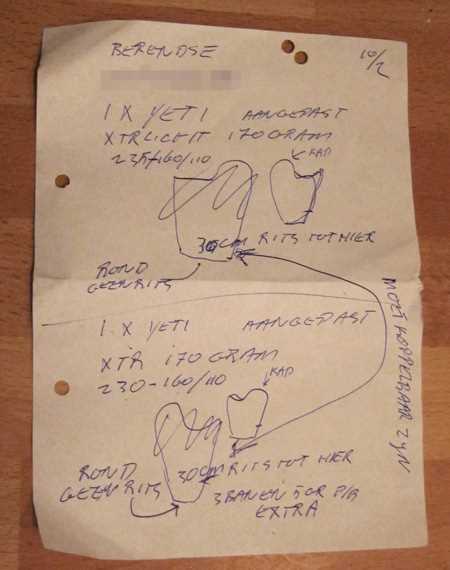 BERENDSE
10/2
1 X YETI AANGEPAST
XTRLICEIT 170 GRAM
235/160/110
KAP
30CM RITS TOT HIER
ROND
GEEN RITS
MOET KOPPELBAAR ZYN
1 X YETI AANGEPAST
XTR 170 GRAM
230-160/110
KAP
30CM RITS TOT HIER
ROND
GEEN RITS
3 BANEN
EXTRA